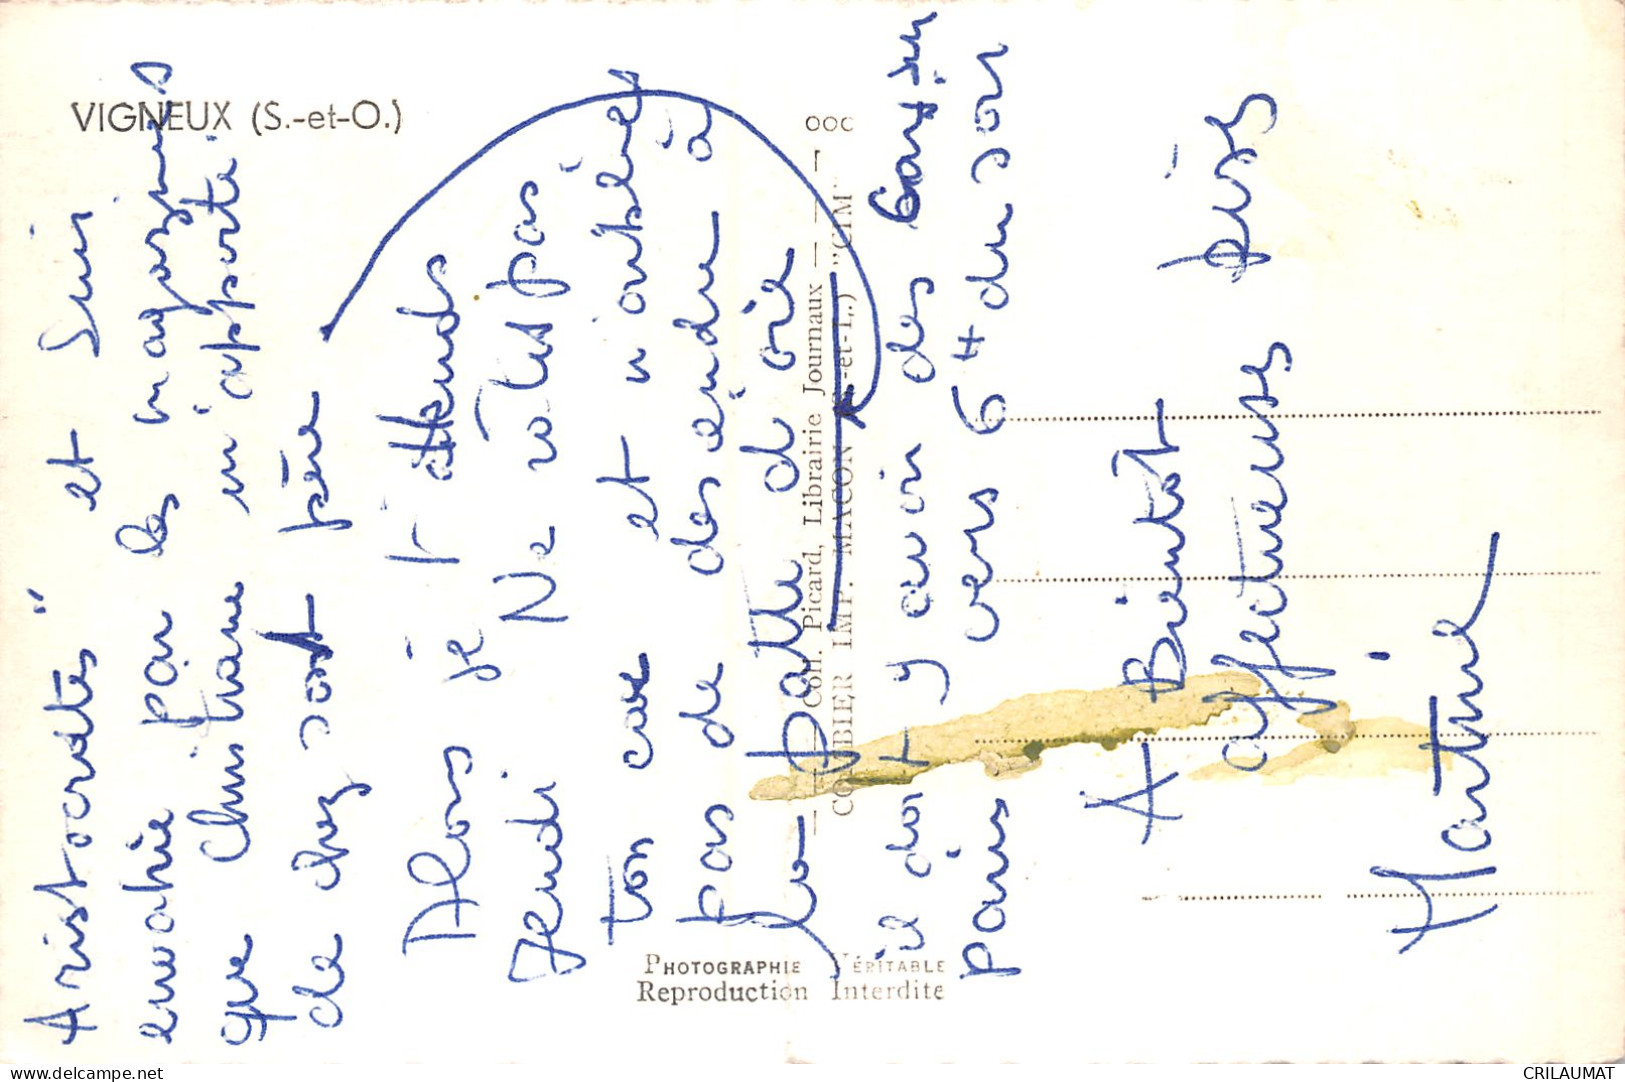 VIGNEUX (S.-et-O.)
Aristocrates" et suis
envahie par les magazines
que Christiane m'apporte
de chez son père
Alors je t'attends
Jeudi Ne votes pas
ton car et n'oublies
pas de descendre à
la patte d'oie
il doit y avoir des cars sur
Paris vers 6H du soir
A Bientôt
affectueuses bises
Martine
Coll. Picard, Librairie Journaux
COMBIER IMP. MACON (S.-et-L.) "CIM"
PHOTOGRAPHIE VÉRITABLE
Reproduction Interdite
delcampe.net
CRILAUMAT